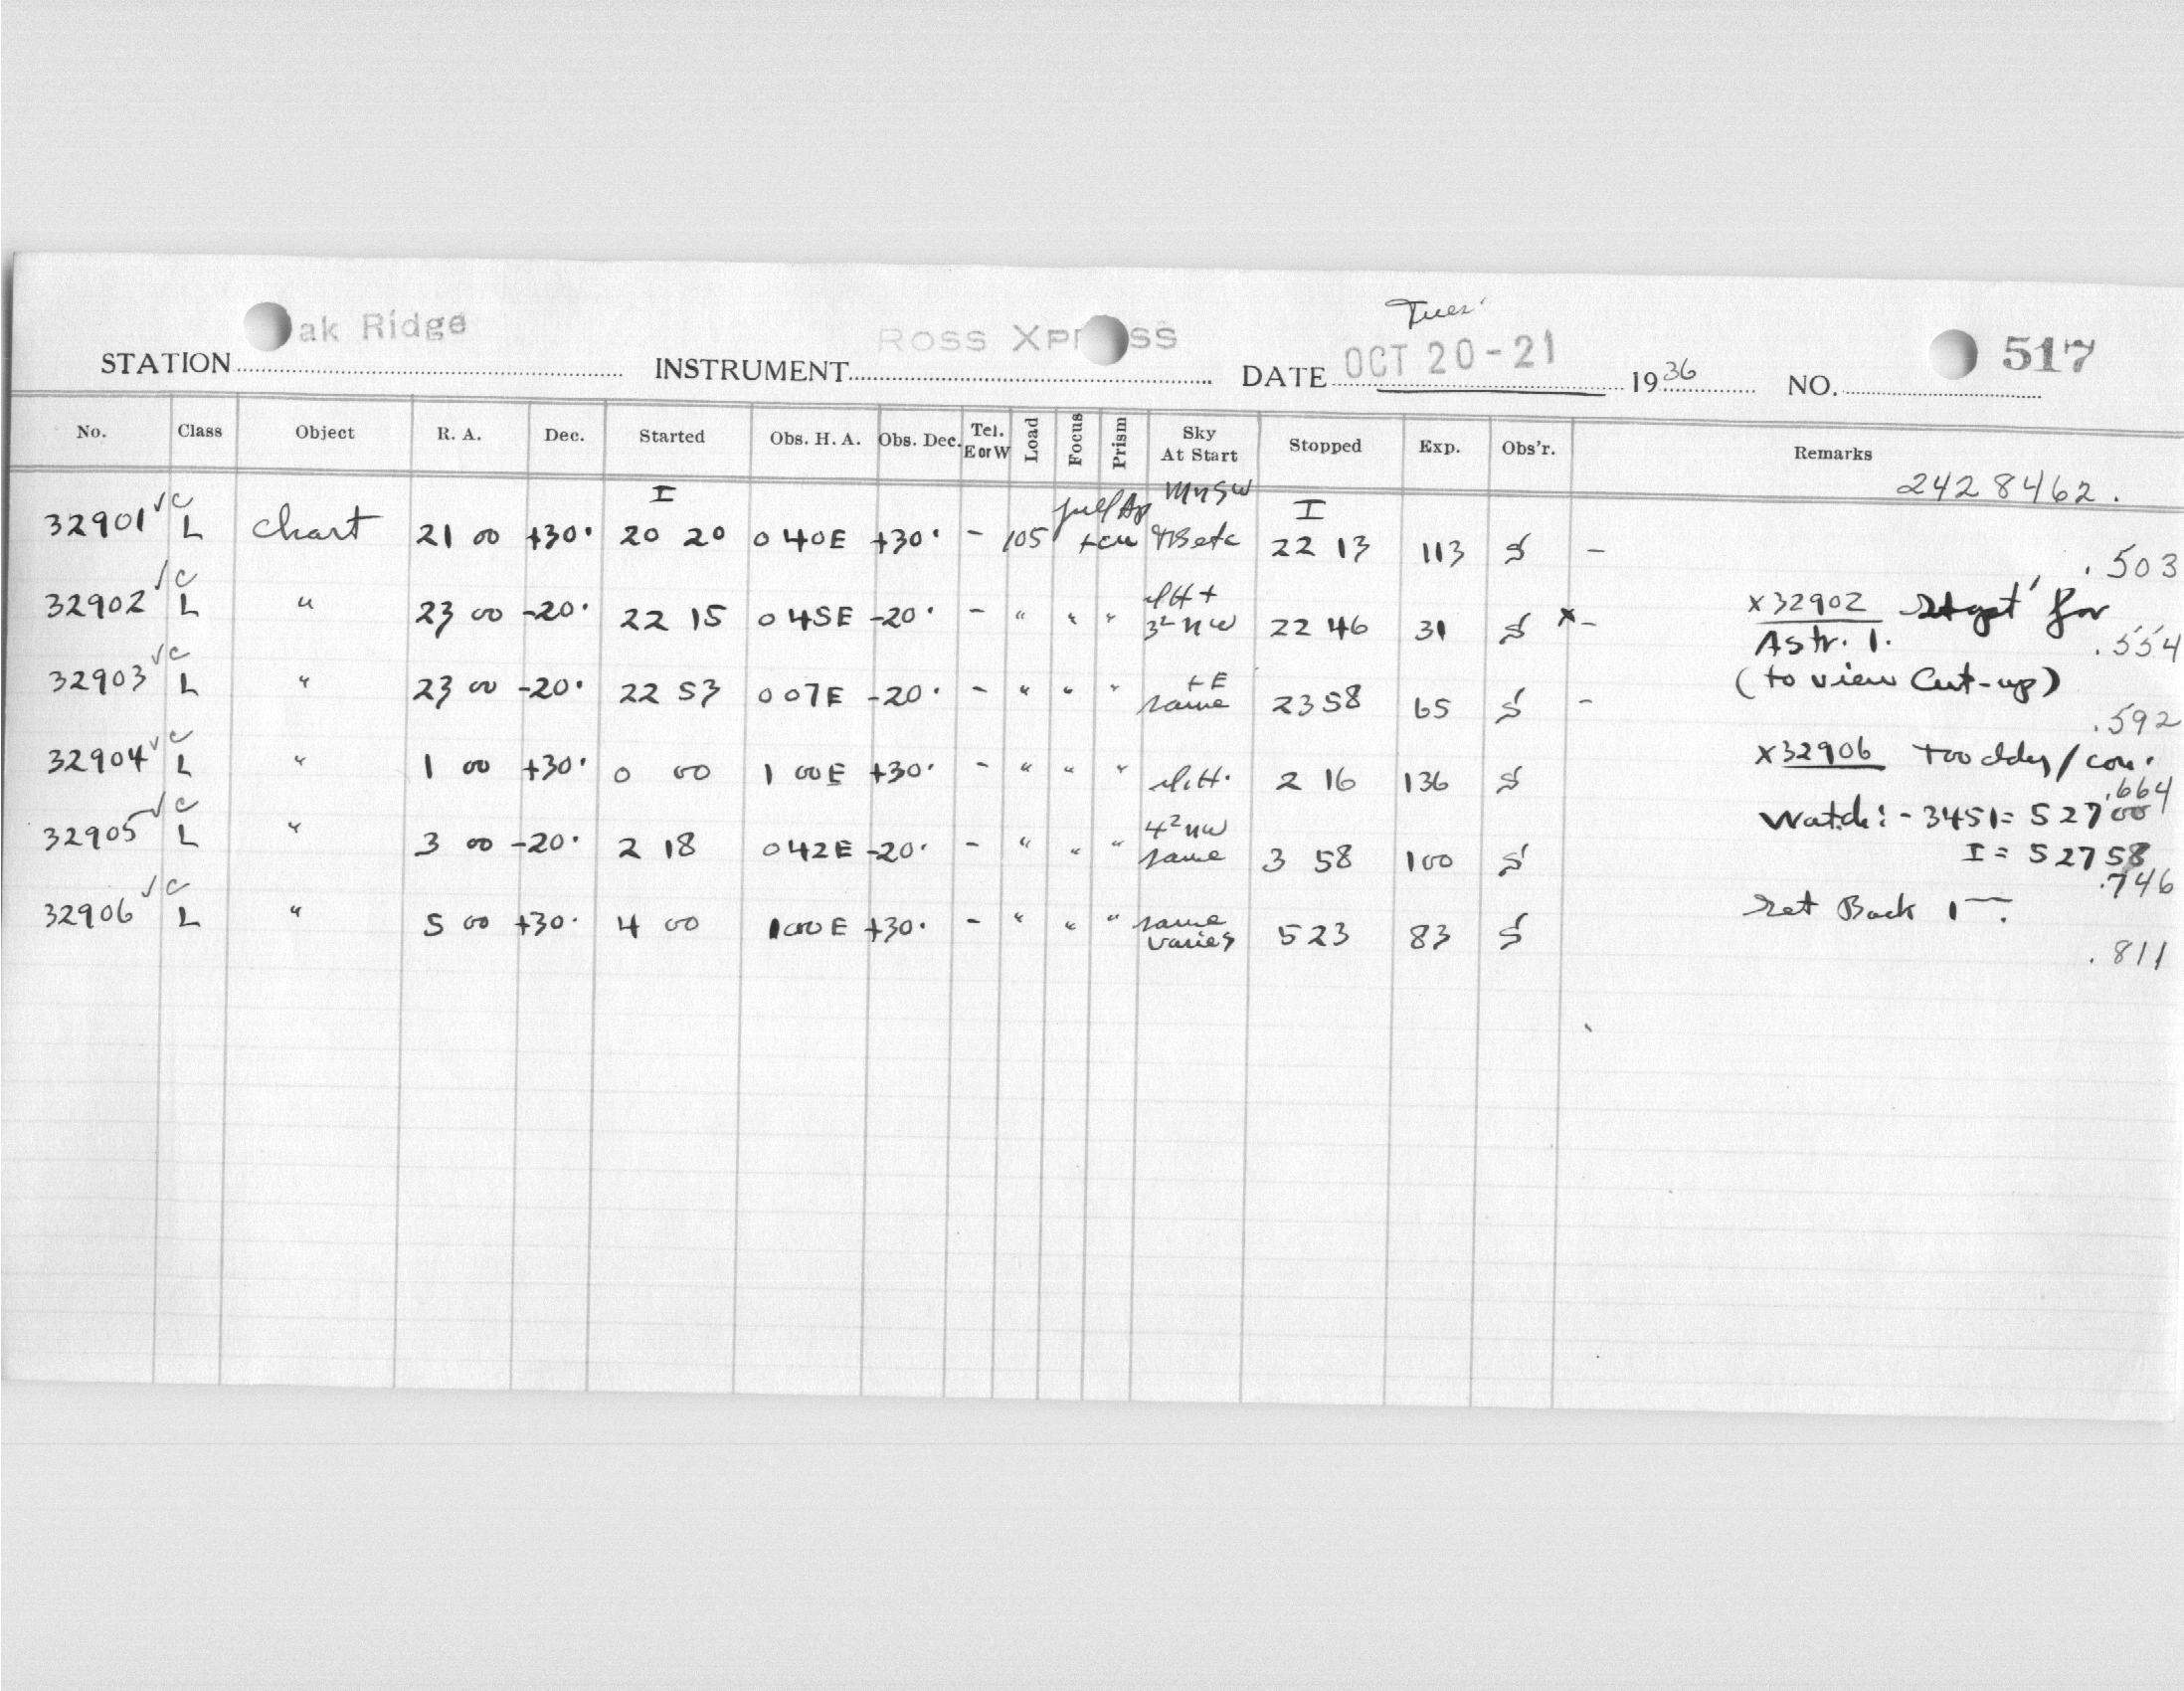 Tues
STATION Oak Ridge INSTRUMENT Ross Xpress DATE OCT 20-21 1936 NO. 517
No. Class Object R. A. Dec. Started Obs. H. A. Obs. Dec. Tel. E or W Load Focus Prism Sky At Start Stopped Exp. Obs'r. Remarks
2428462.
32901 √c L Chart 21 00 +30° I 20 20 0 40E +30° - 105 full Ap Mn SW etc I 22 13 113 S - .503
32902 √c L " 23 00 -20° 22 15 0 45E -20° - " " " 3² nw 22 46 31 S x- x32902 for .554
Astr. 1.
32903 √c L " 23 00 -20° 22 53 0 07E -20° - " " " + E same 23 58 65 S - (to view Cut-up) .592
32904 √c L " 1 00 +30° 0 00 1 00E +30° - " " " 2 16 136 S x32906 Too cldy/con. .664
32905 √c L " 3 00 -20° 2 18 0 42E -20° - " " " 4² nw same 3 58 100 S Watch: -3451= 5 27 00
I = 5 27 58
.746
32906 √c L " 5 00 +30° 4 00 1 00E +30° - " " " same varies 5 23 83 S Set Back 1 .811